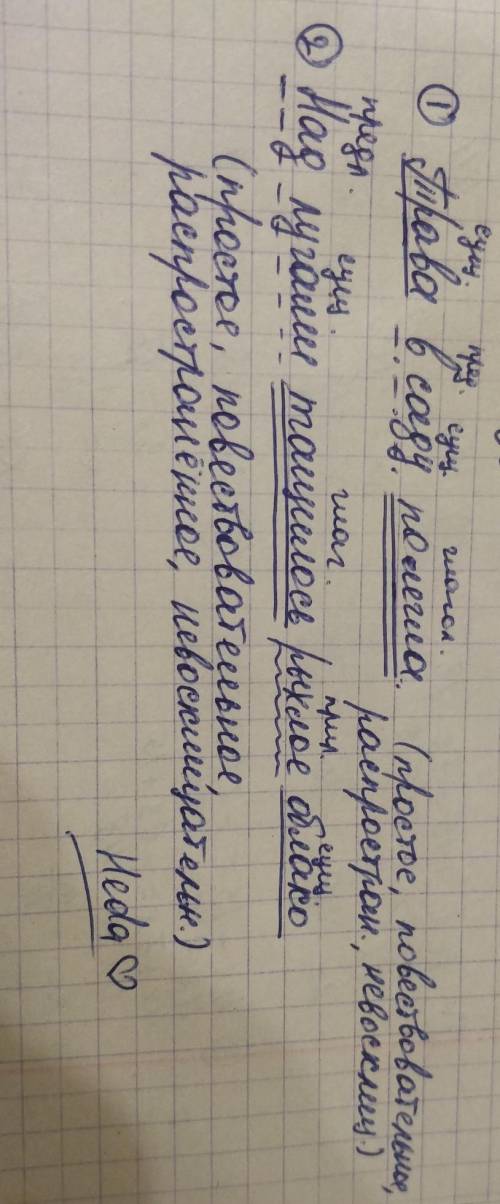 сущ. пред. сущ. глагол.
① Трава в саду полегла. (простое, повествовательн,
распростран., невосклиц.)
предл. сущ. глаг. прил. сущ.
② Над лугами тащилось рыхлое облако
(простое, повествовательное,
распространённое, невосклицательн.)
Neda ♡